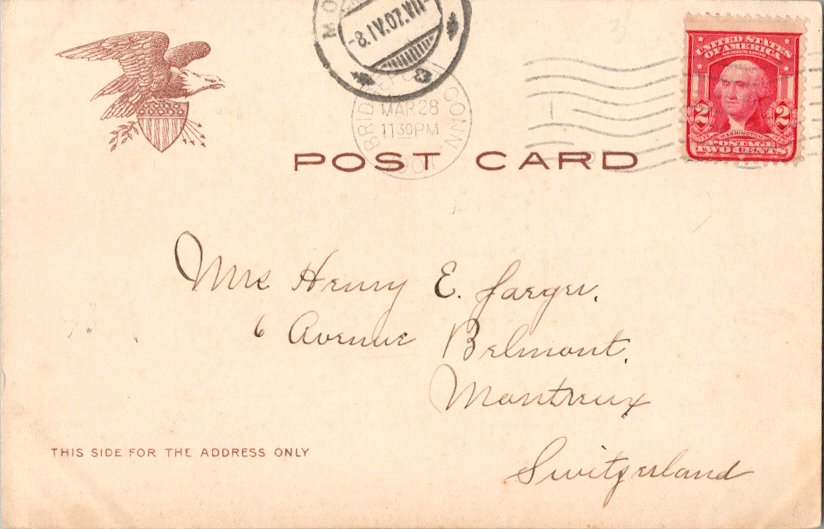 BRIDGEPORT CONN.
MAR 28
1130PM
UNITED STATES
OF AMERICA
2 2
WASHINGTON
POSTAGE
TWO CENTS
POST CARD
Mrs Henry E. Jaeger.
6 Avenue Belmont.
Montreux
Switzerland
THIS SIDE FOR THE ADDRESS ONLY